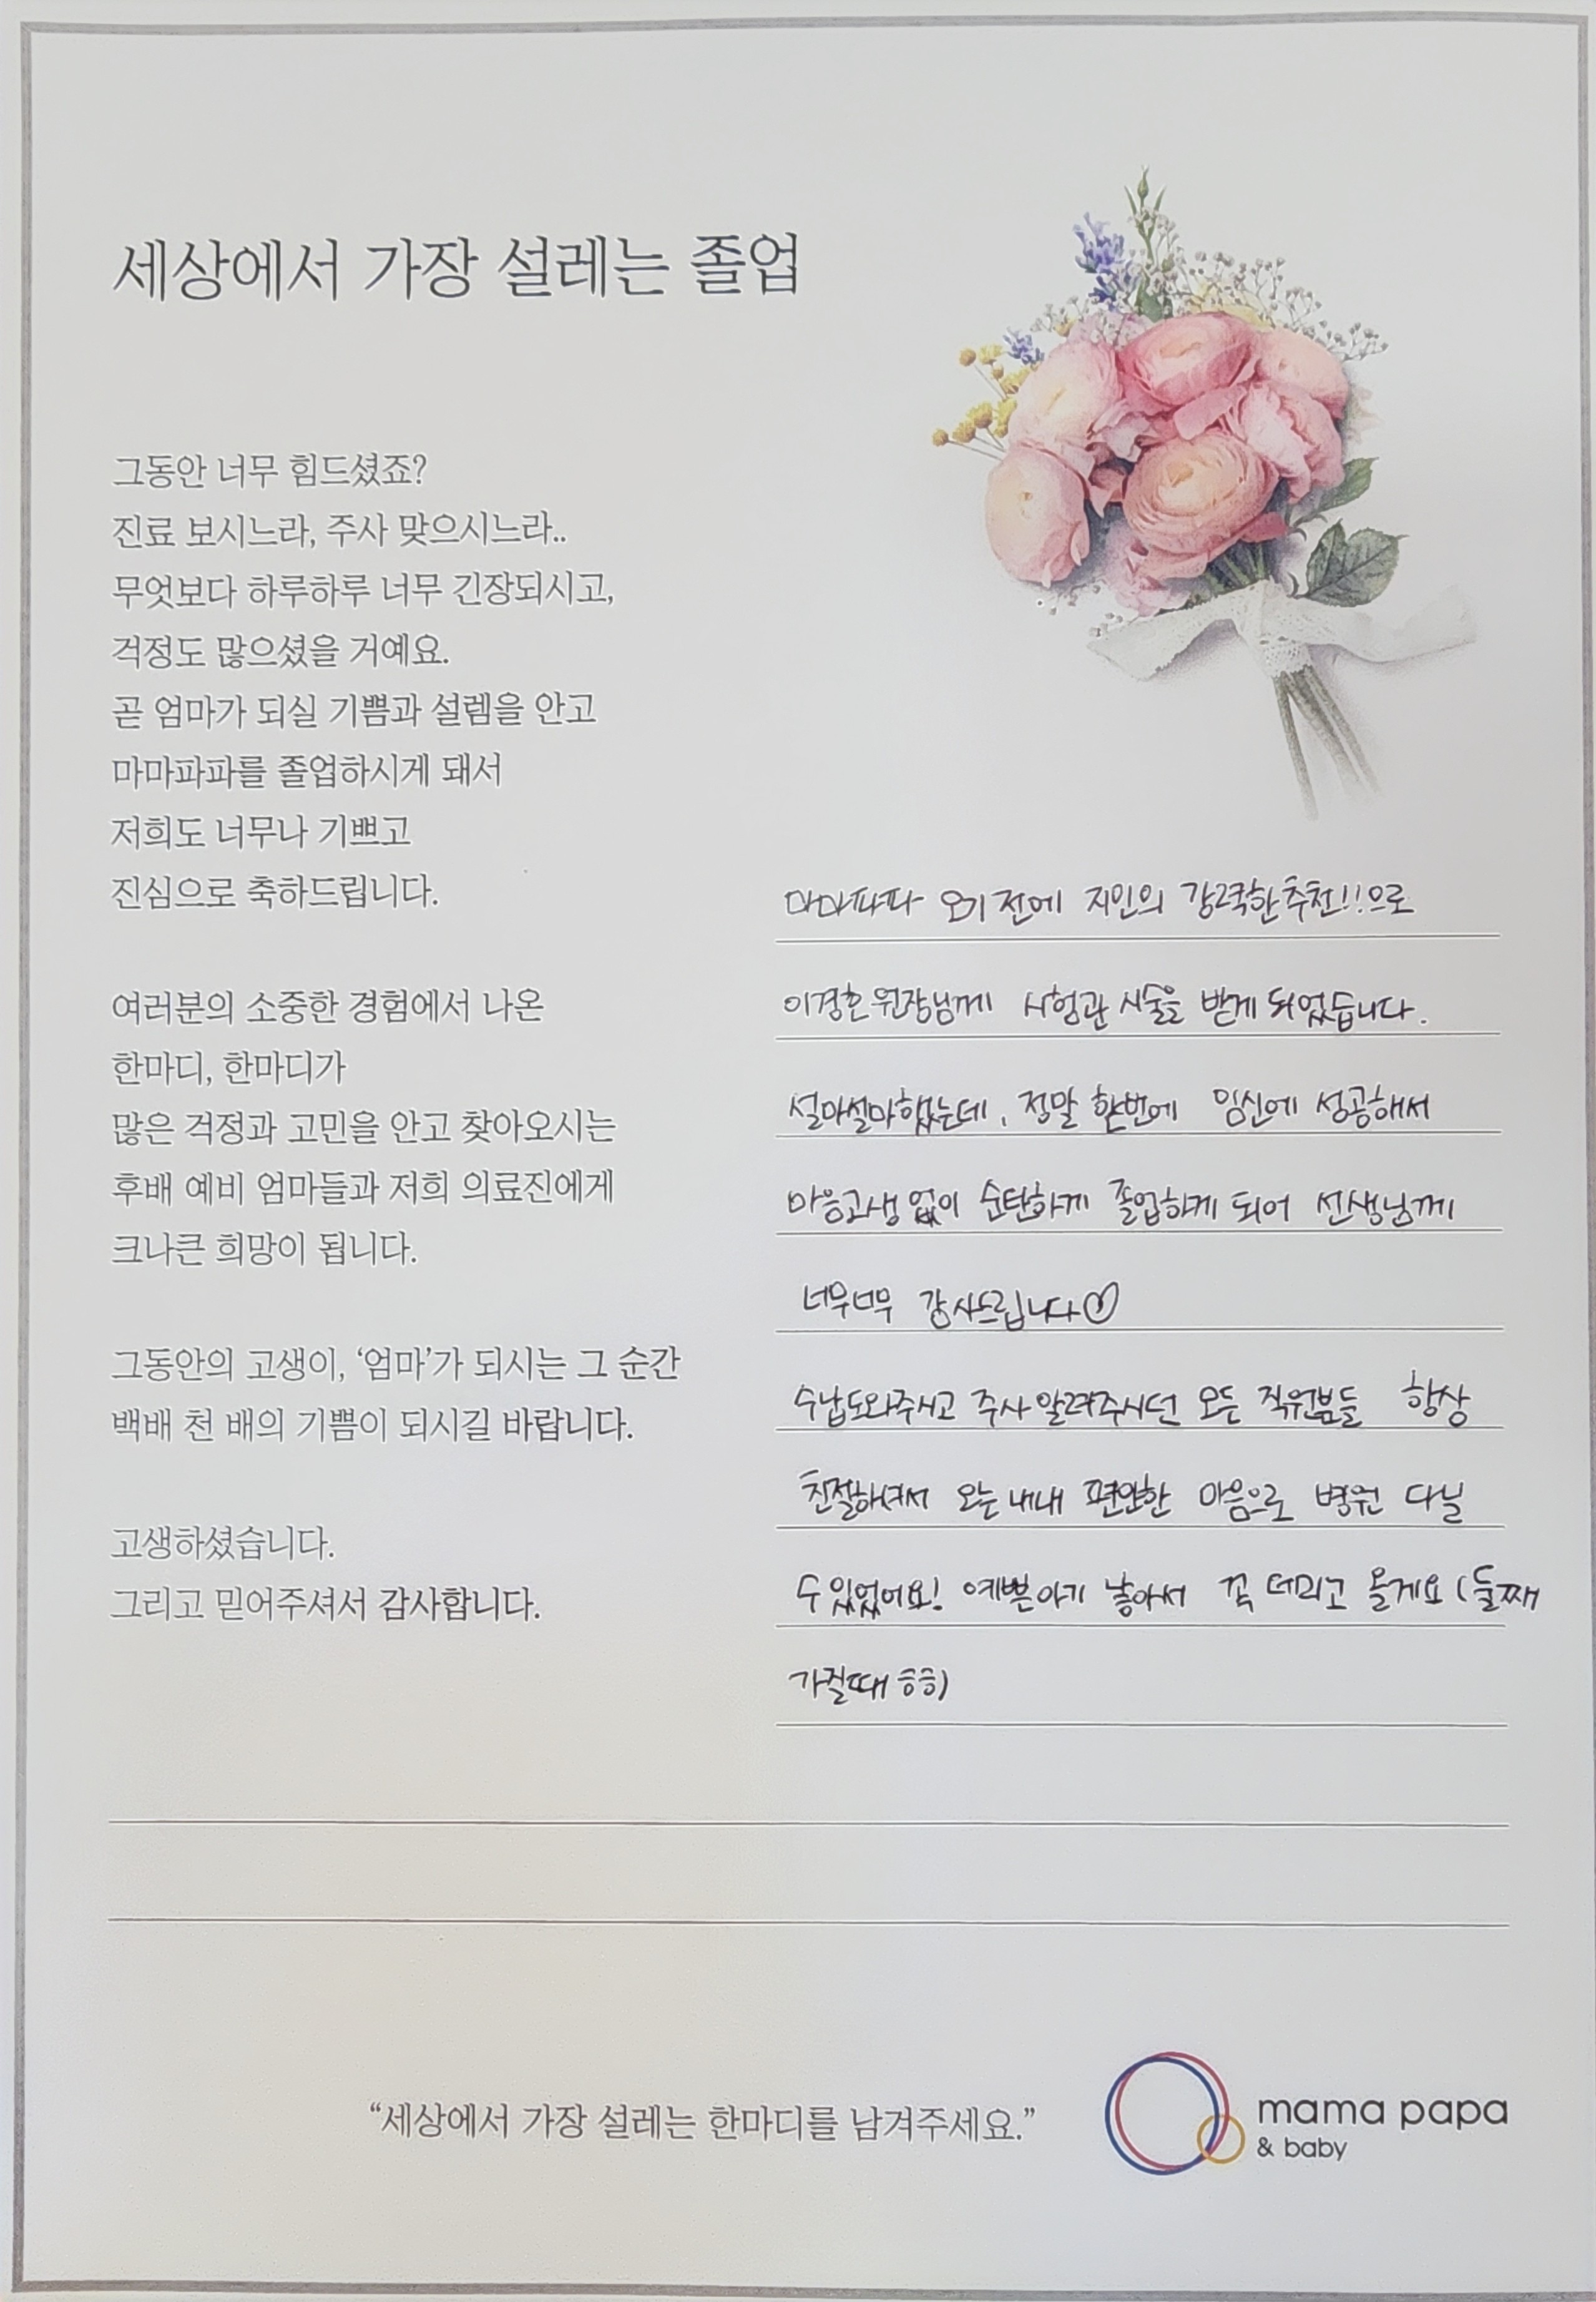 세상에서 가장 설레는 졸업
그동안 너무 힘드셨죠?
진료 보시느라, 주사 맞으시느라..
무엇보다 하루하루 너무 긴장되시고,
걱정도 많으셨을 거예요.
곧 엄마가 되실 기쁨과 설렘을 안고
마마파파를 졸업하시게 돼서
저희도 너무나 기쁘고
진심으로 축하드립니다.
여러분의 소중한 경험에서 나온
한마디, 한마디가
많은 걱정과 고민을 안고 찾아오시는
후배 예비 엄마들과 저희 의료진에게
크나큰 희망이 됩니다.
그동안의 고생이, ‘엄마’가 되시는 그 순간
백배 천 배의 기쁨이 되시길 바랍니다.
고생하셨습니다.
그리고 믿어주셔서 감사합니다.
마마파파 오기 전에 지인의 강력한 추천!!으로
이경훈 원장님께 시험관 시술을 받게 되었습니다.
설마설마했는데, 정말 한번에 임신에 성공해서
마음고생 없이 순탄하게 졸업하게 되어 선생님께
너무너무 감사드립니다♡
수납도와주시고 주사 알려주시던 모든 직원분들 항상
친절하셔서 오는내내 편안한 마음으로 병원 다닐
수 있었어요! 예쁜아기 낳아서 꼭 데리고 올게요 (둘째
가질때 ㅎㅎ)
“세상에서 가장 설레는 한마디를 남겨주세요.”
mama papa
& baby